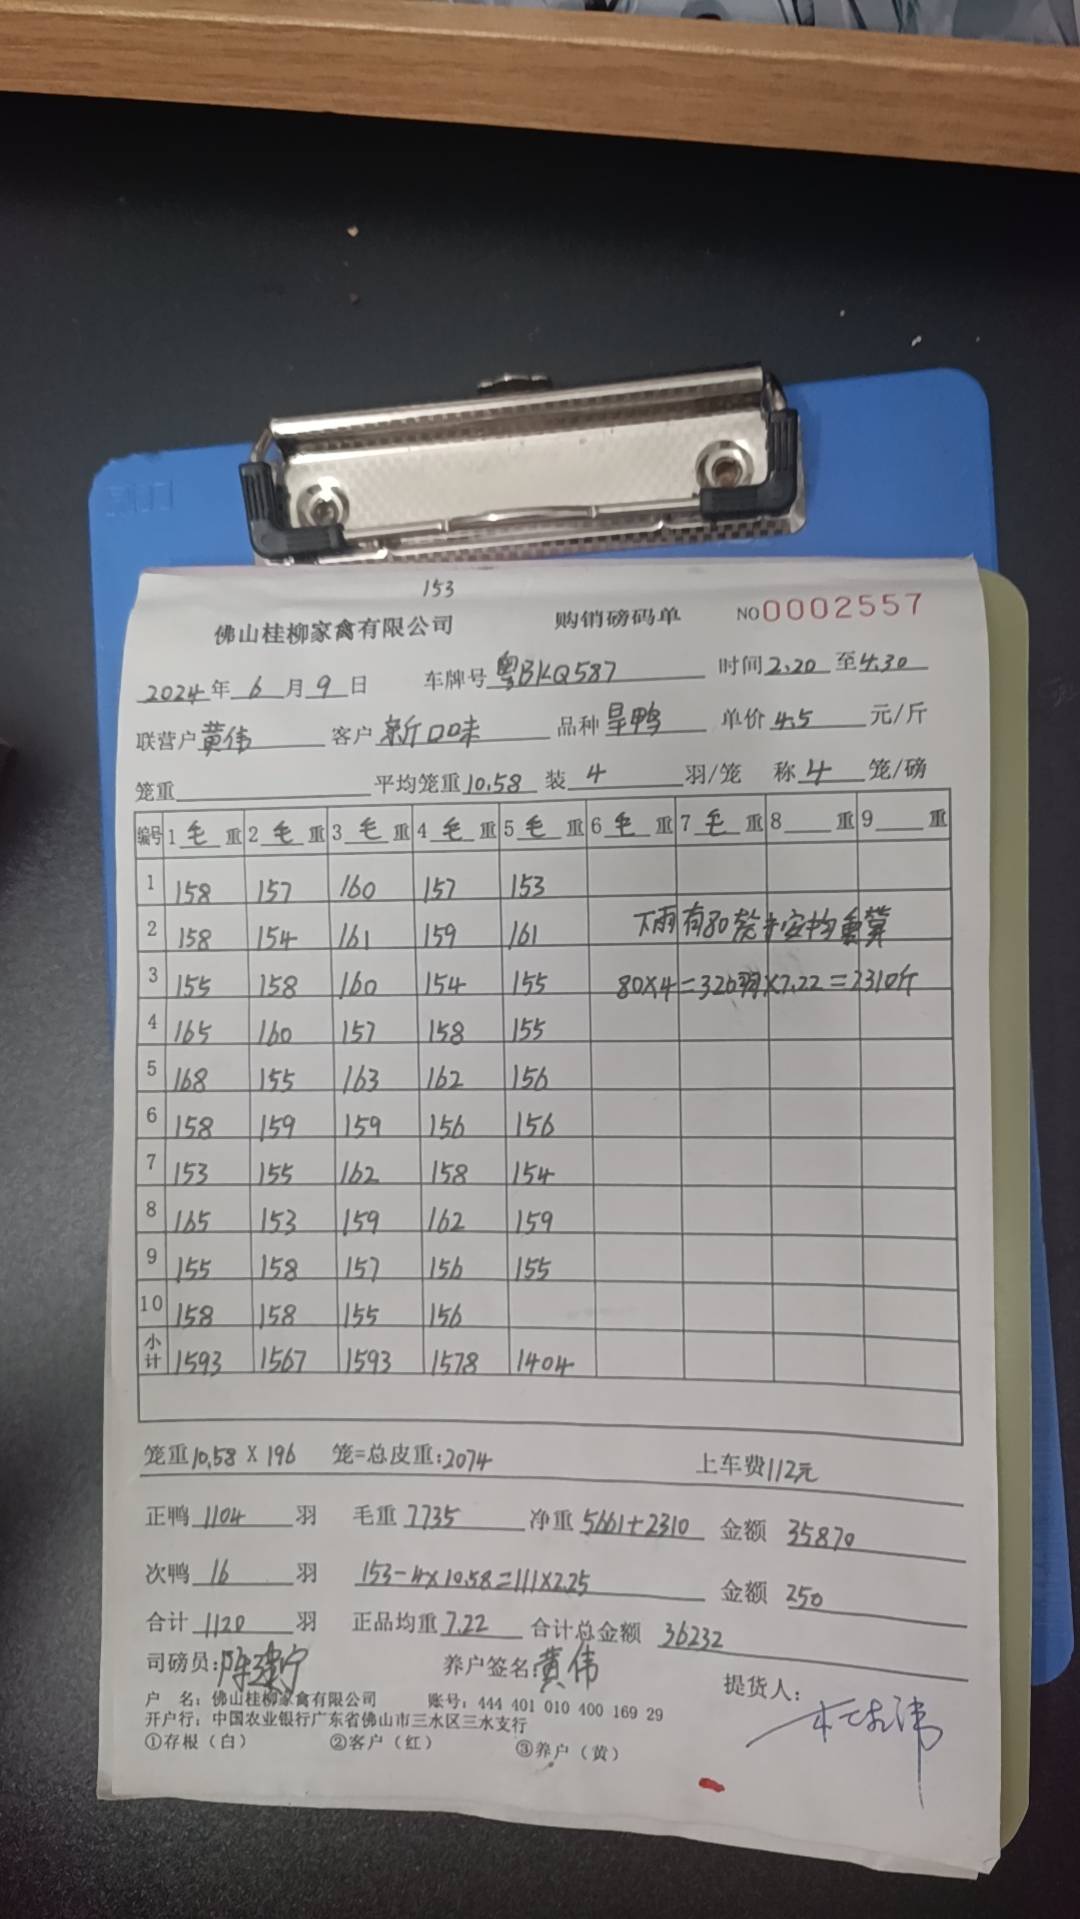 153
佛山桂柳家禽有限公司 购销磅码单 NO0002557
2024年6月9日 车牌号粤BKQ587 时间2.20至4.30
联营户黄伟 客户新口味 品种旱鸭 单价4.5元/斤
笼重 平均笼重10.58 装4羽/笼 称4笼/磅
编号 1毛重 2毛重 3毛重 4毛重 5毛重 6毛重 7毛重 8重 9重
1 158 157 160 157 153
2 158 154 161 159 161 下雨有80笼按均重算
3 155 158 160 154 155 80×4=320羽×7.22=2310斤
4 165 160 157 158 155
5 168 155 163 162 156
6 158 159 159 156 156
7 153 155 162 158 154
8 165 153 159 162 159
9 155 158 157 156 155
10 158 158 155 156
小计 1593 1567 1593 1578 1404
笼重10.58 X 196 笼=总皮重:2074 上车费112元
正鸭1104羽 毛重7735 净重5661+2310 金额 35870
次鸭16羽 153-4×10.58=111×2.25 金额 250
合计1120羽 正品均重7.22 合计总金额 36232
司磅员:陈建宁 养户签名:黄伟 提货人:
户 名: 佛山桂柳家禽有限公司 账号: 444 401 010 400 169 29
开户行: 中国农业银行广东省佛山市三水区三水支行
①存根（白） ②客户（红） ③养户（黄）